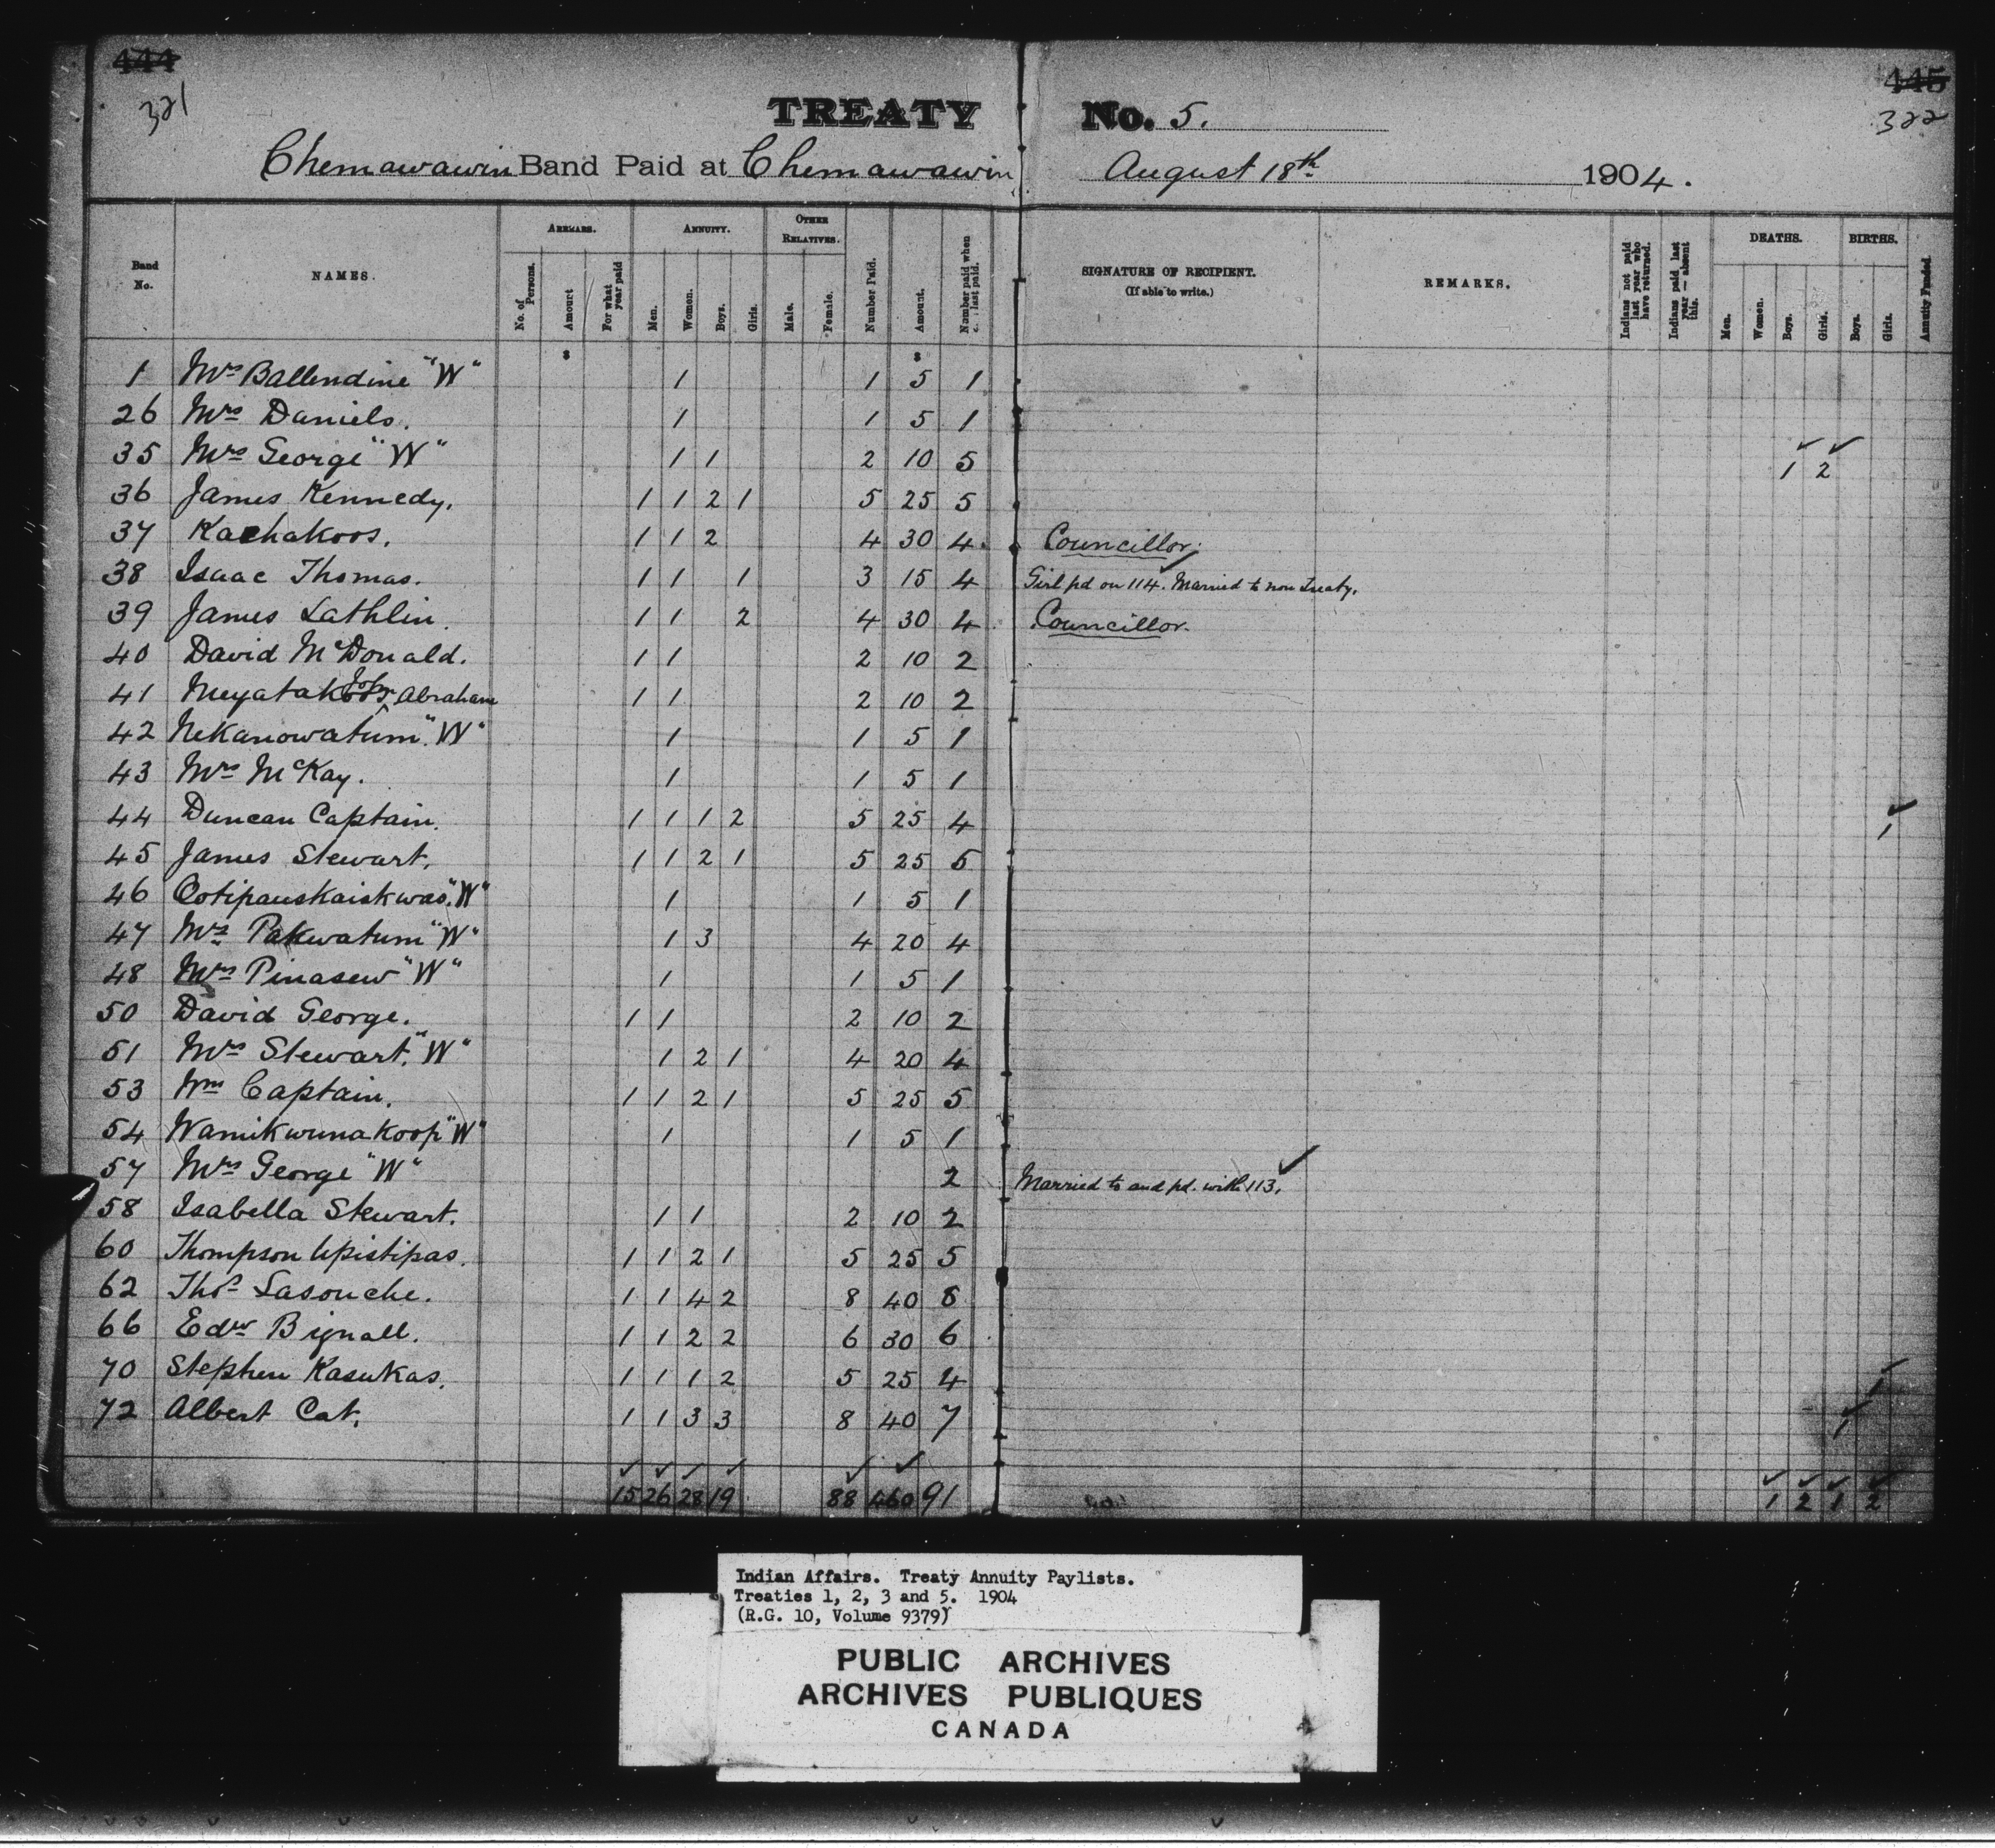 444 445
321 322
TREATY No. 5.
Chemawawin Band Paid at Chemawawin August 18th 1904.
Band No. NAMES. ARREARS. No. of Persons. Amount For what year paid ANNUITY. Men. Women. Boys. Girls. OTHER RELATIVES. Male. Female. Number Paid. Amount. Number paid when last paid. SIGNATURE OF RECIPIENT. (If able to write.) REMARKS. Indians not paid last year who have returned. Indians paid last year — absent this. DEATHS. Men. Women. Boys. Girls. BIRTHS. Boys. Girls. Annuity Funded.
$ $
1 Mrs Ballendine "W" 1 1 5 1
26 Mrs Daniels. 1 1 5 1
35 Mrs George "W" 1 1 2 10 5 1 2
36 James Kennedy. 1 1 2 1 5 25 5
37 Kachakoos. 1 1 2 4 30 4. Councillor.
38 Isaac Thomas. 1 1 1 3 15 4 Girl pd on 114. Married to non Treaty.
39 James Lathlin. 1 1 2 4 30 4 Councillor.
40 David McDonald. 1 1 2 10 2
41 Abraham 1 1 2 10 2
42 Nekanowatum "W" 1 1 5 1
43 Mrs McKay. 1 1 5 1
44 Duncan Captain. 1 1 1 2 5 25 4 1
45 James Stewart. 1 1 2 1 5 25 5
46 Ootipauskaiskwas. "W" 1 1 5 1
47 Mrs Pakwatum "W" 1 3 4 20 4
48 Mrs Pinasew "W" 1 1 5 1
50 David George. 1 1 2 10 2
51 Mrs Stewart. "W" 1 2 1 4 20 4
53 Wm Captain. 1 1 2 1 5 25 5
54 Wamikwunakoop "W" 1 1 5 1
57 Mrs George "W" 2 Married to and pd. with 113.
58 Isabella Stewart. 1 1 2 10 2
60 Thompson Apistipas. 1 1 2 1 5 25 5
62 Thos Lasouche. 1 1 4 2 8 40 8
66 Edw Bignall. 1 1 2 2 6 30 6
70 Stephen Kasukas. 1 1 1 2 5 25 4 1
72 Albert Cat. 1 1 3 3 8 40 7 1
15 26 28 19 88 460 91 1 2 1 2
Indian Affairs. Treaty Annuity Paylists.
Treaties 1, 2, 3 and 5. 1904
(R.G. 10, Volume 9379)
PUBLIC ARCHIVES
ARCHIVES PUBLIQUES
CANADA